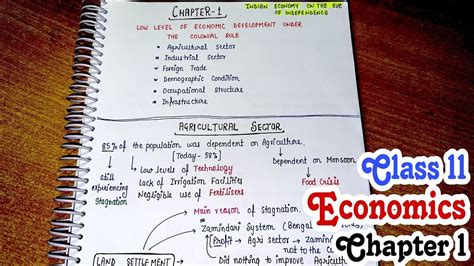 CHAPTER-1
INDIAN ECONOMY ON THE EVE
OF INDEPENDENCE
LOW LEVEL OF ECONOMIC DEVELOPMENT UNDER
THE COLONIAL RULE
* Agricultural Sector
* Industrial Sector
* Foreign Trade
* Demographic Condition
* Occupational Structure
* Infrastructure
AGRICULTURAL SECTOR
85% of the population was dependent on Agriculture.
[Today - 58%]
still experiencing Stagnation
Low levels of Technology
Lack of Irrigation Facilities
Negligible use of Fertilisers
Dependent on Monsoon
Food Crisis
Main reason of stagnation.
Zamindari System (Bengal
Profit - Agri sector → Zamind
not to the Cu
Did nothing to improve Agricult
LAND SETTLEMENT
Class 11
Economics
Chapter 1